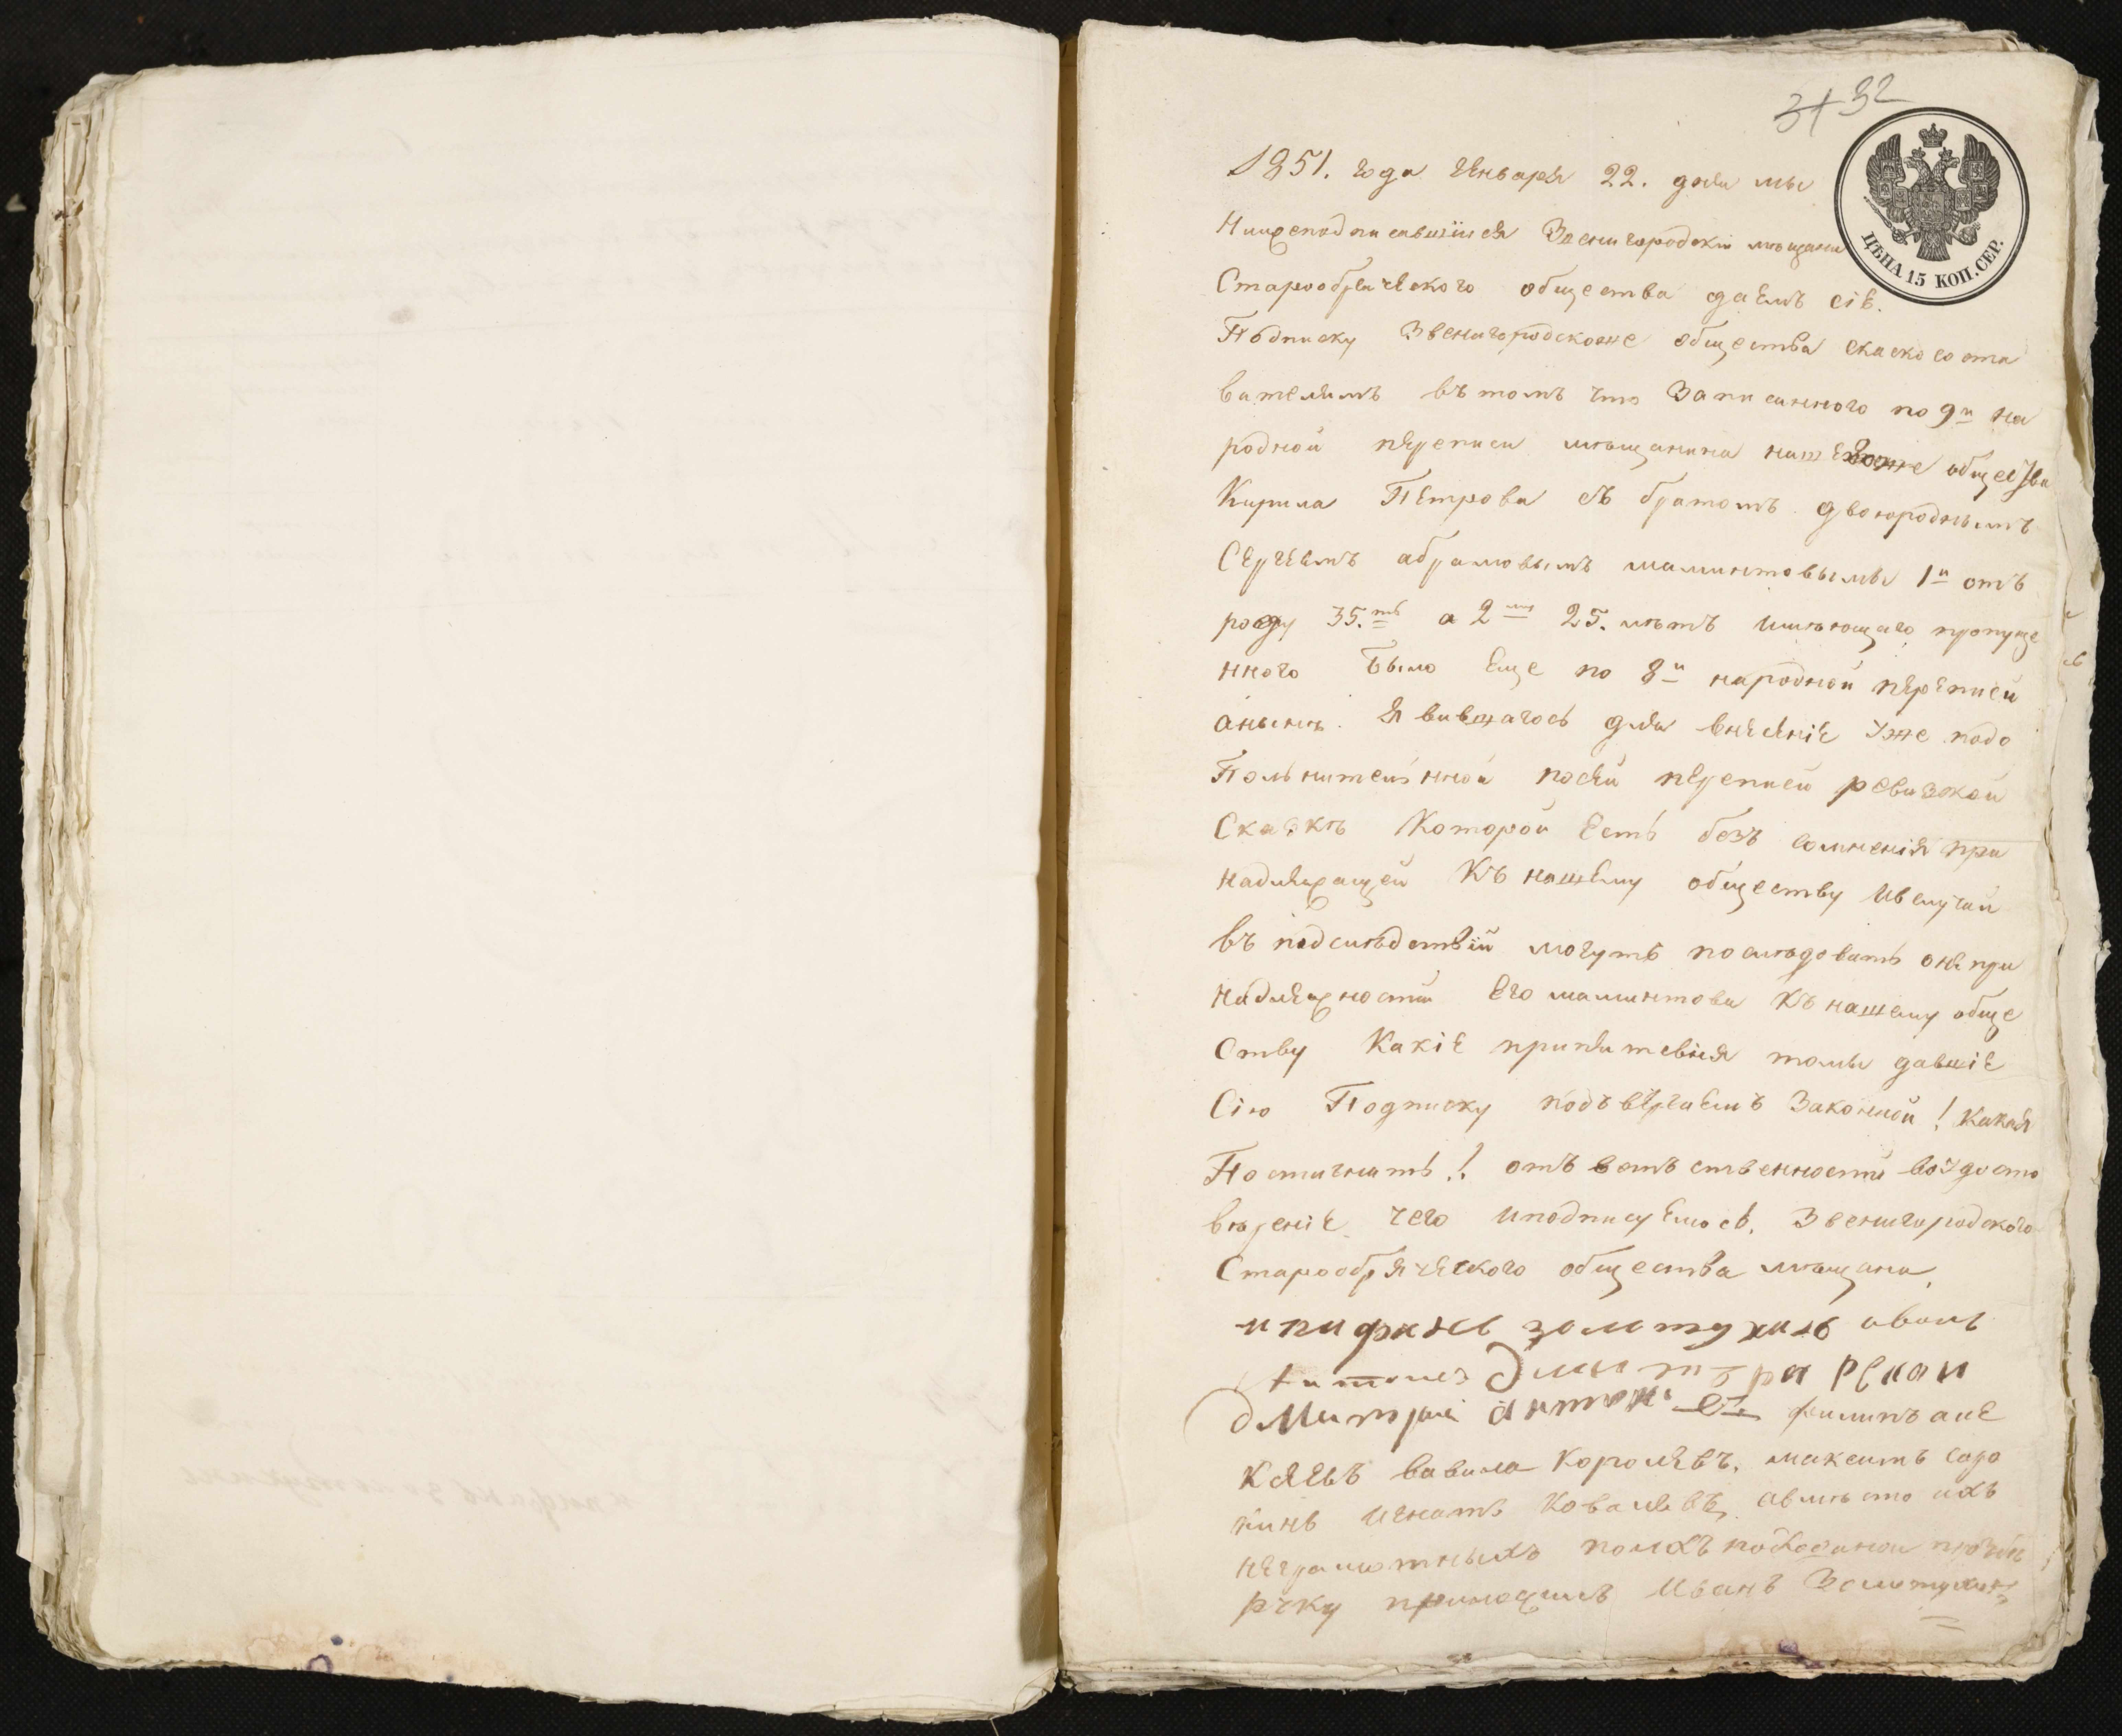 31 32
ЦѢНА 15 КОП. СЕР.
1851. года Января 22. дня мы
Нижеподписавшіися Звенигородскіи мѣщани
Старообрячского общества даемъ сіе
Подписку Звенигородскояже общества скаско соста
вителямъ въ томъ что Записанного по 9й на
родной переписи мѣщанина наше общества
Кирила Петрова съ братомъ двоюроднымъ
Сергеемъ абрамовымъ мамынтовымы 1й отъ
роду 35.ть а 2мы 25. лѣтъ имѣющаго пропуще
нного было еще по 8й народной переписи
анынѣ. Явившагось для внесеніе Уже подо
Польнительнной посей переписи ревизкой
Сказкѣ Которой Есть безъ сомненія при
надлежащей Къ нашему обществу ивслучаи
въ подслѣдствіи могутъ послѣдовать оне при
надлежности Его мамынтова Къ нашему обще
Ству Какіе припятсвія томы давшіе
Сію Подписку подъвергаемъ Законной ! Какая
Постигнить !! отъ ветъственности воудосто
вѣреніе чего иподписуемось. Звенигородского
Старообрячѣского общества мѣщани,
ипифанъ золотухинъ
дмитрий антон филипъ але
Ксѣевъ вавила Королевъ. максимъ соро
кинъ игнатъ Ковалевъ, авмѣсто ихъ
неграмотныхъ
рчку приложилъ Иванъ Золотухинъ